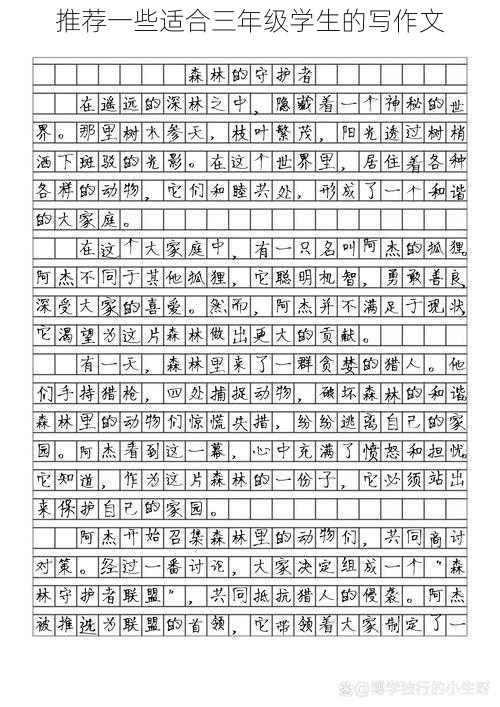 推荐一些适合三年级学生的写作文
森林的守护者
在遥远的深林之中，隐藏着一个神秘的世
界。那里树木参天，枝叶繁茂，阳光透过树梢
洒下斑驳的光影。在这个世界里，居住着各种
各样的动物，它们和睦共处，形成了一个和谐
的大家庭。
在这个大家庭中，有一只名叫阿杰的狐狸。
阿杰不同于其他狐狸，它聪明机智，勇敢善良，
深受大家的喜爱。然而，阿杰并不满足于现状，
它渴望为这片森林做出更大的贡献。
有一天，森林里来了一群贪婪的猎人。他
们手持猎枪，四处捕捉动物，破坏森林的和谐
森林里的动物们惊慌失措，纷纷逃离自己的家
园。阿杰看到这一幕，心中充满了愤怒和担忧。
它知道，作为这片森林的一份子，它必须站出
来保护自己的家园。
阿杰开始召集森林里的动物们，共同商讨
对策。经过一番讨论，大家决定组成一个"森
林守护者联盟"，共同抵抗猎人的侵袭。阿杰
被推选为联盟的首领，它带领着大家制定了一
@博学独行的小生呀